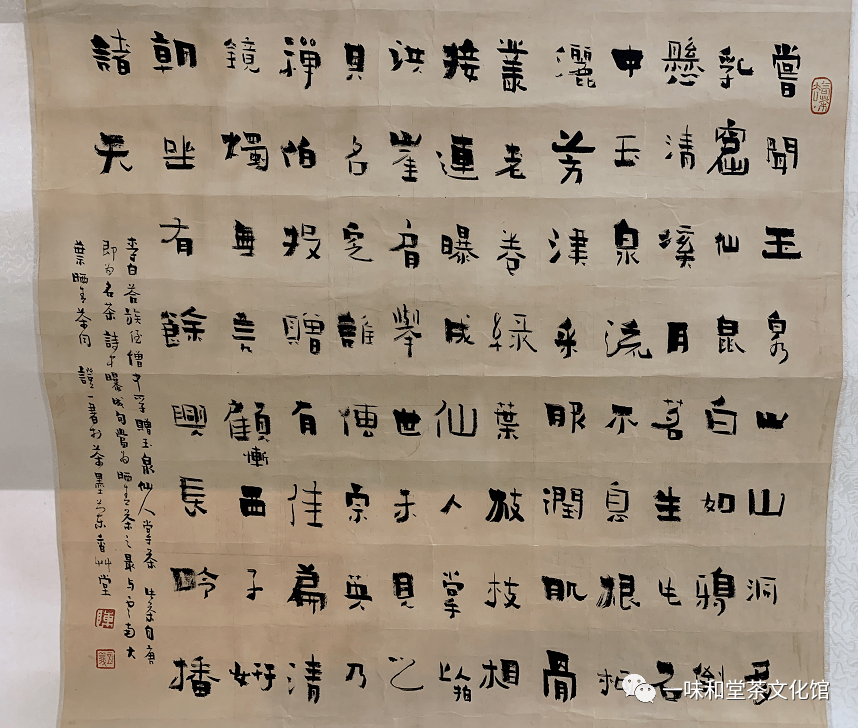 嘗聞玉泉山山洞多
乳窟仙鼠白如鴉倒
懸清溪月茗生此石
中玉泉流不息根柯
灑芳津采服潤肌骨
叢老卷綠葉枝枝相
接連曝成仙人掌以拍
洪崖肩舉世未見之
其名定誰傳宗英乃
禪伯投贈有佳篇清
鏡燭無顧慚西子妍
朝坐有餘興長吟播
諸天
李白答族侄僧中孚贈玉泉仙人掌茶 此茶自唐
即為名茶 詩中曝成句當為晒青茶之最與云南大
葉晒青茶同 證一書於茶墨香艸堂
陳
一味和堂茶文化馆